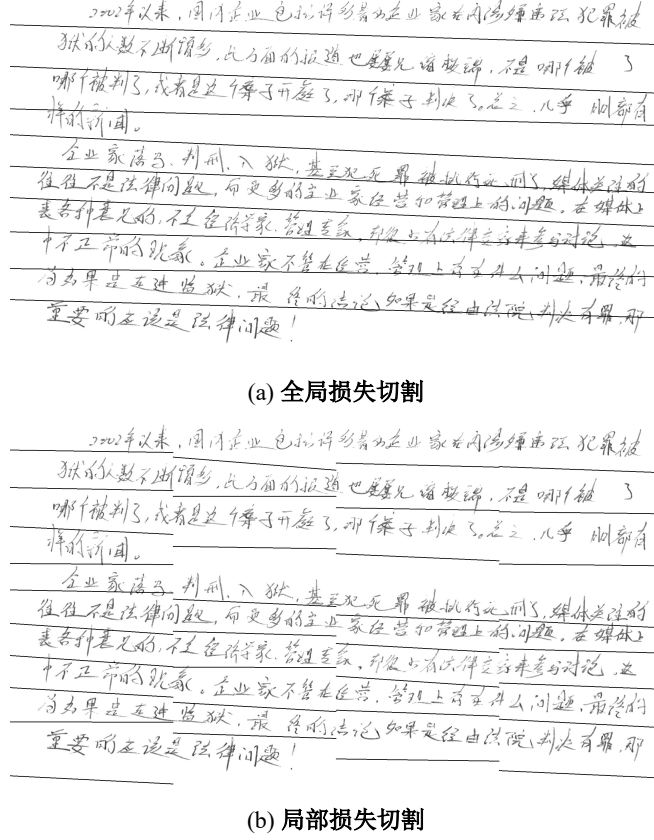 2002年以来，国内企业包括许多著名企业家在内涉嫌违法犯罪被
狱的人数不断增多，此方面的报道也屡屡见诸报端，不是哪个被 了
哪个被判了，或者是这个案子开庭了，那个案子判决了。总之，几乎 都有
样的新闻。
企业家落马、判刑、入狱，甚至犯死罪被执行死刑了，媒体关注的
往往不是法律问题，而更多的企业家经营和管理上的问题。在媒体上
表各种意见的，不是经济学家、管理专家，却很少有法律专家来参与讨论，这
中不正常的现象。企业家不管在经营、管理上存在什么问题，最终的
如果是在进监狱，最终的结论如果是经由法院判决有罪，那
重要的应该是法律问题！
(a) 全局损失切割
2002年以来，国内企业包括许多著名企业家在内涉嫌违法犯罪被
狱的人数不断增多，此方面的报道也屡屡见诸报端，不是哪个被 了
哪个被判了，或者是这个案子开庭了，那个案子判决了。总之，几乎 都有
样的新闻。
企业家落马、判刑、入狱，甚至犯死罪被执行死刑了，媒体关注的
往往不是法律问题，而更多的企业家经营和管理上的问题。在媒体上
表各种意见的，不是经济学家、管理专家，却很少有法律专家来参与讨论，这
中不正常的现象。企业家不管在经营、管理上存在什么问题，最终的
如果是在进监狱，最终的结论如果是经由法院判决有罪，那
重要的应该是法律问题！
(b) 局部损失切割